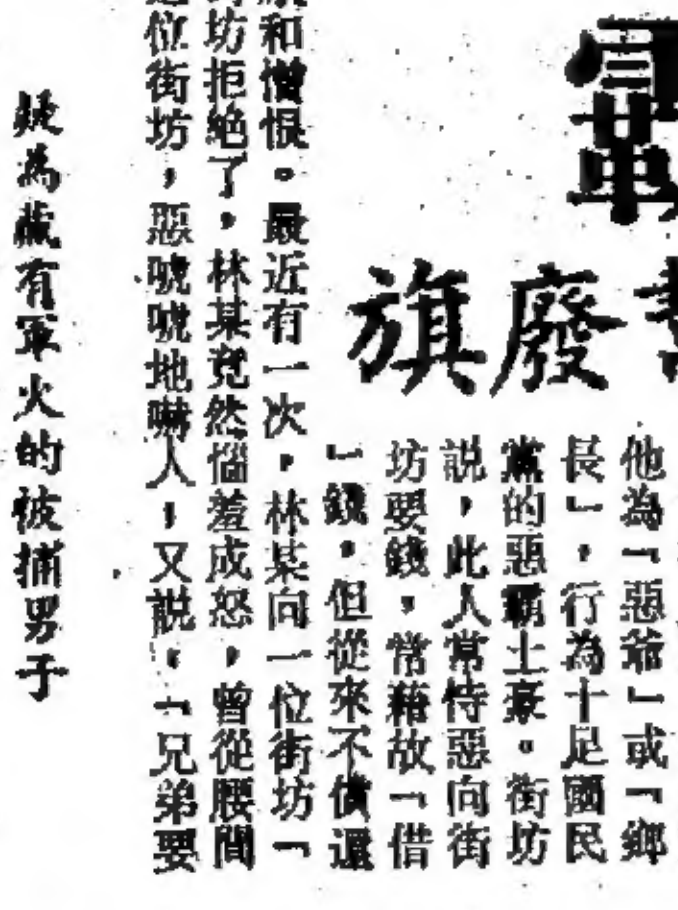 廢旗
他為「惡爺」或「鄉
長」，行為十足國民
黨的惡霸土豪。街坊
説，此人常恃惡向街
坊要錢，常藉故「借
」錢，但從來不償還
和憎恨。最近有一次，林某向一位街坊「
坊拒絶了，林某竟然惱羞成怒，曾從腰間
位街坊，惡唬唬地嚇人，又説，「兄弟要
疑為藏有軍火的被捕男子